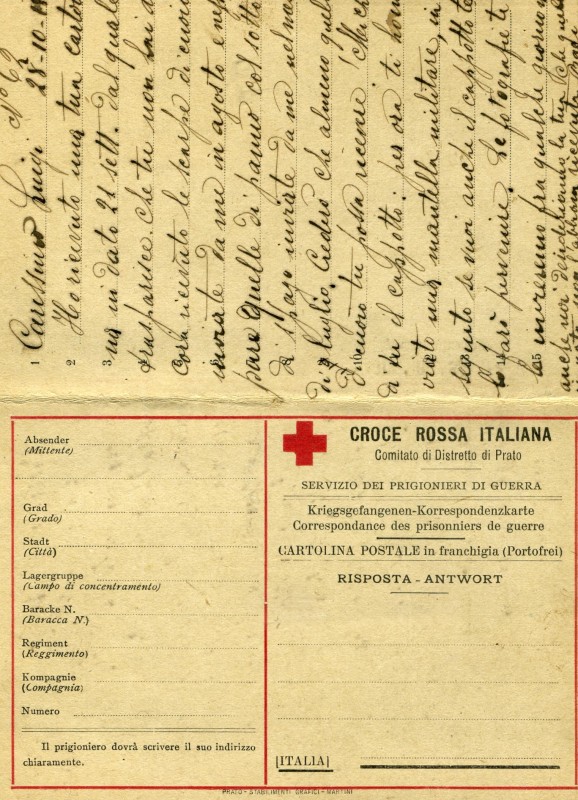 1 Carissimo Luigi N° 62 28-10-
2 Ho ricevuto una tua cartol
3 na in dato 21 sett. dal quale
trasparisce che tu non hai a
cora ricevuto le scarpe di cuoio
inviate da me in agosto e nep
pure quelle di panno col sotto
di inviate da me nel me
di luglio. Credo che almeno quel
di cuoio tu possa ricevere. Mi chi
di il cappotto: per ora ti ho in
viato una mantella militare, in
seguito se vuoi anche il cappotto te
lo farò pervenire. Le fotografie te
15 le invieremo fra qualche giorno
anche noi desideriamo la tua che
l'abbiamo ricevuta
Absender
(Mittente)
Grad
(Grado)
Stadt
(Città)
Lagergruppe
(Campo di concentramento)
Baracke N.
(Baracca N.)
Regiment
(Reggimento)
Kompagnie
(Compagnia)
Numero
Il prigioniero dovrà scrivere il suo indirizzo
chiaramente.
CROCE ROSSA ITALIANA
Comitato di Distretto di Prato
SERVIZIO DEI PRIGIONIERI DI GUERRA
Kriegsgefangenen-Korrespondenzkarte
Correspondance des prisonniers de guerre
CARTOLINA POSTALE in franchigia (Portofrei)
RISPOSTA - ANTWORT
[ITALIA]
PRATO - STABILIMENTI GRAFICI - MARTINI